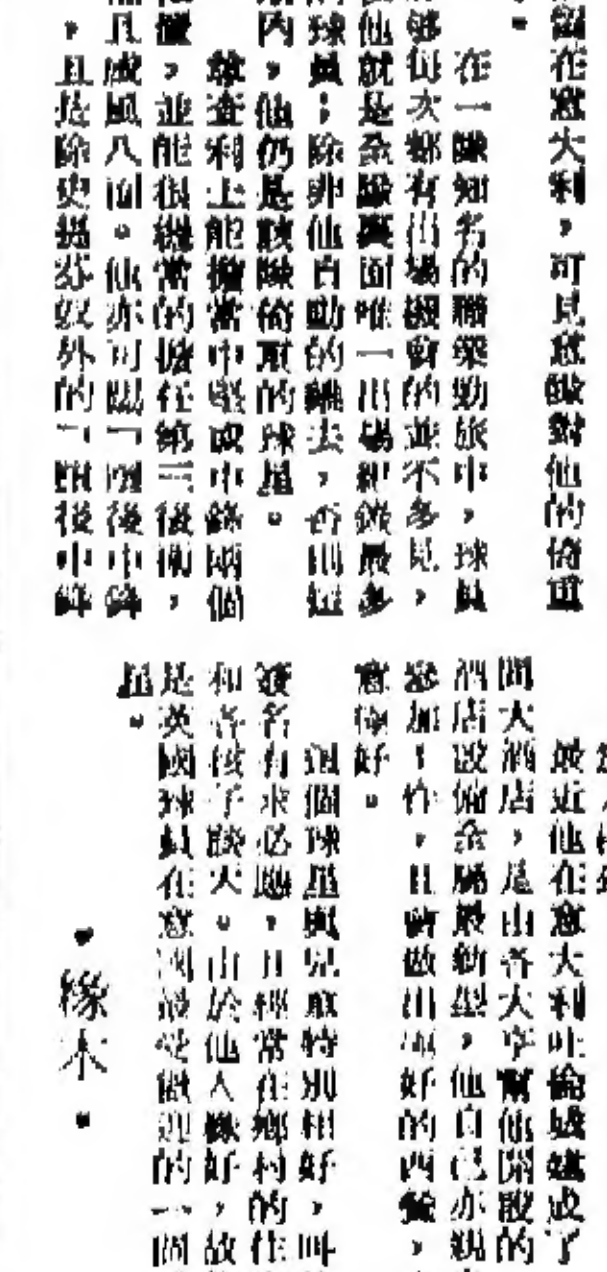 留在意大利，可見意國對他的倚重
。
在一隊知名的職業勁旅中，球員
够每次都有出場機會的並不多見，
他就是全隊裏面唯一出場紀錄最多
球員；除非他自動的離去，否則短
內，他仍是該隊倚重的球星。
故查利士能擔當中堅或中鋒兩個
，並能很機當的擔任第三後衛，
且威風八面。他亦可踢「明後中鋒
，且是除史提芬奴外的「明後中鋒
最近他在意大利吐倫城建成了
間大酒店，是由各大亨幫他開設的
酒店設備全屬最新型，他自己亦親
參加工作，且會做出頂好的西餐，
意倘好。
這個球星與兒童特別相好，叫
簽名有求必應，且經常在鄉村的住
和各孩子談天。由於他人緣好，故
是英國球員在意國最受歡迎的一個
星。
•緣木•